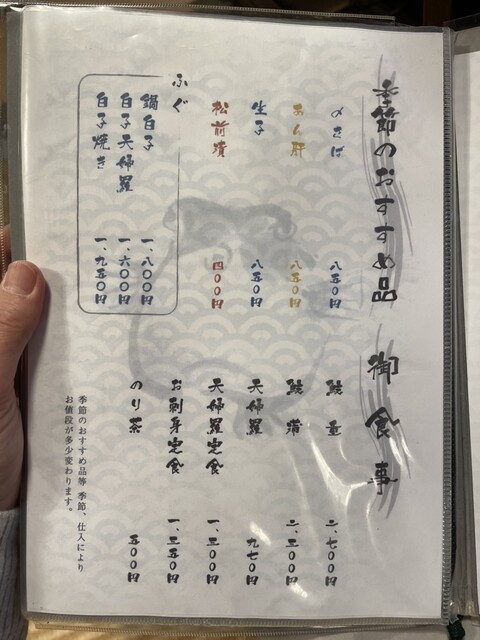 季節のおすすめ品
〆さば 八五〇円
あん肝 八五〇円
生子 八五〇円
松前漬 四〇〇円
ふぐ
鍋白子 一、八〇〇円
白子天婦羅 一、六〇〇円
白子焼き 一、九五〇円
御食事
二、七〇〇円
二、三〇〇円
天婦羅 九七〇円
天婦羅定食 一、三〇〇円
お刺身定食 一、三五〇円
のり茶 五〇〇円
季節のおすすめ品等 季節、仕入により
お値段が多少変わります。